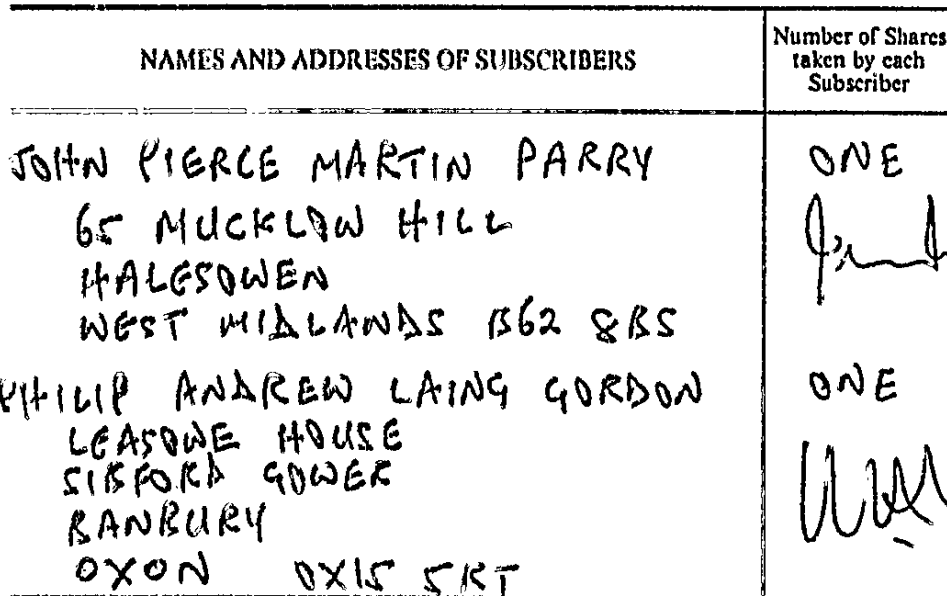 NAMES AND ADDRESSES OF SUBSCRIBERS
Number of Shares
taken by each
Subscriber
JOHN PIERCE MARTIN PARRY ONE
65 MUCKLOW HILL
HALESOWEN
WEST MIDLANDS B62 8BS
PHILIP ANDREW LAING GORDON ONE
LEASOWE HOUSE
SIBFORD GOWER
BANBURY
OXON OX15 5RT